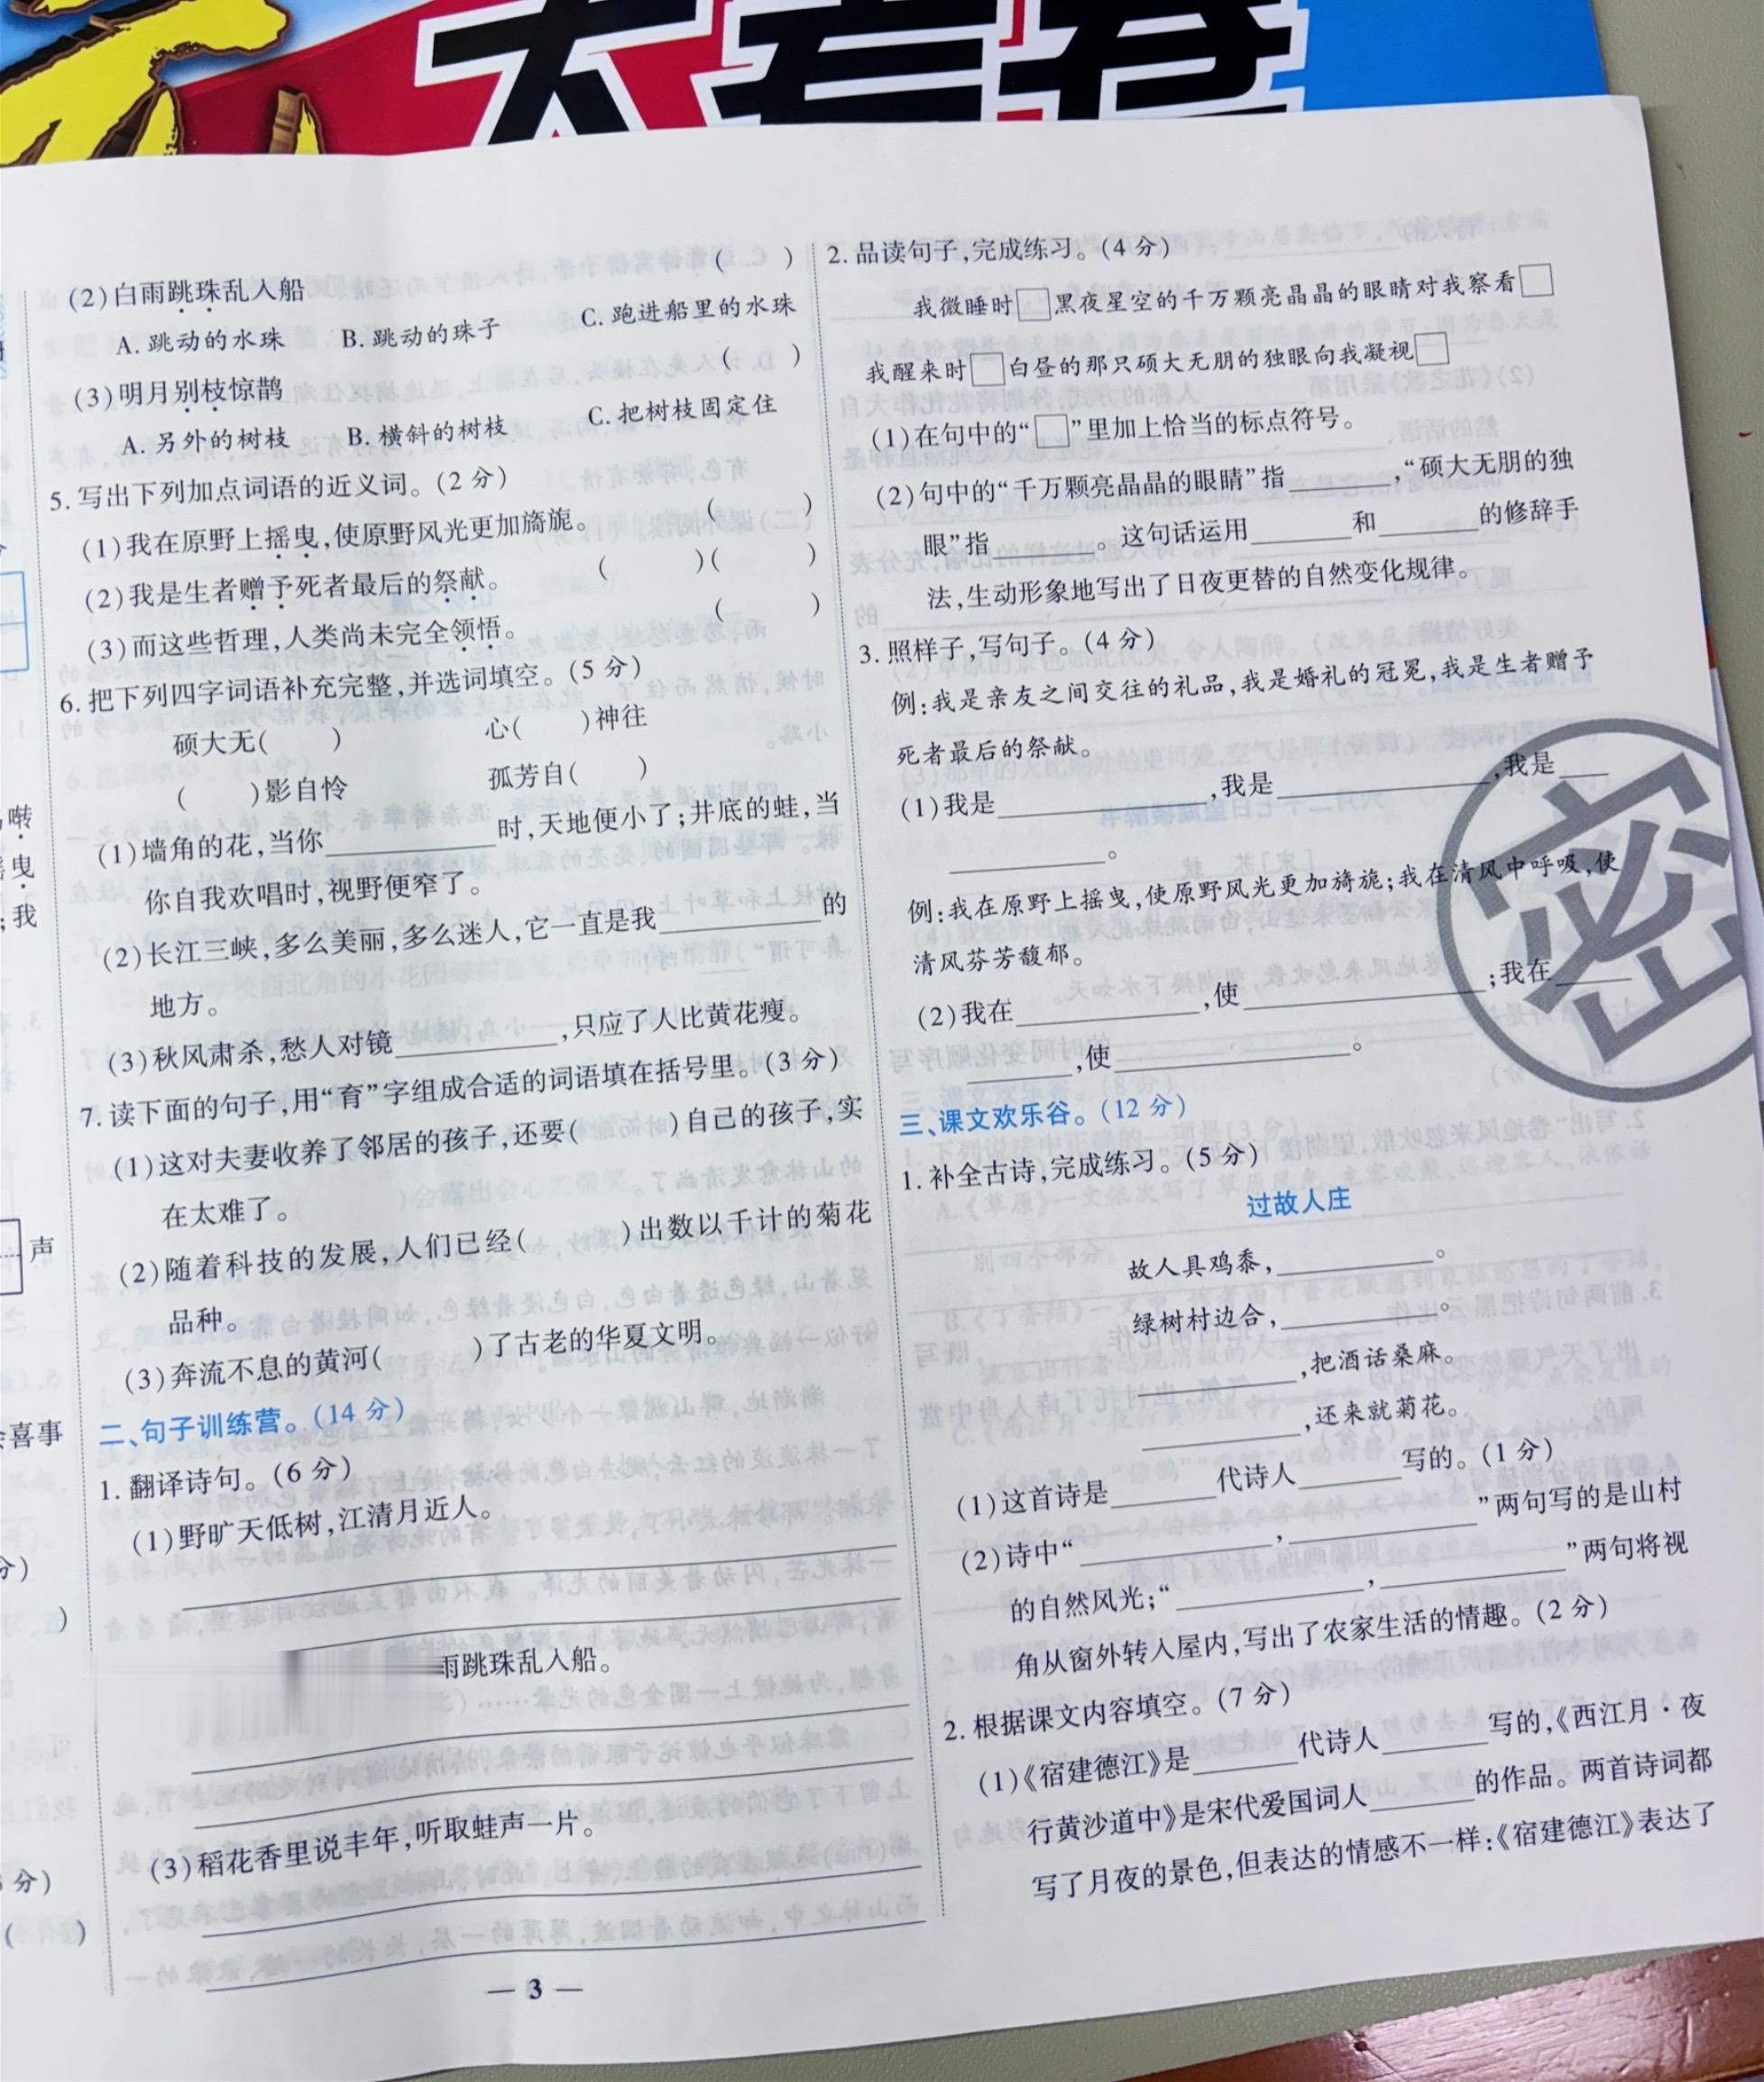 大考卷
(2)白雨跳珠乱入船 (  )
A. 跳动的水珠 B. 跳动的珠子 C. 跑进船里的水珠
(3)明月别枝惊鹊 (  )
A. 另外的树枝 B. 横斜的树枝 C. 把树枝固定住
5. 写出下列加点词语的近义词。(2 分)
(1)我在原野上摇曳,使原野风光更加旖旎。 (  )
(2)我是生者赠予死者最后的祭献。 (  )(  )
(3)而这些哲理,人类尚未完全领悟。 (  )
6. 把下列四字词语补充完整,并选词填空。(5 分)
硕大无(  ) 心(  )神往
(  )影自怜 孤芳自(  )
(1)墙角的花,当你________时,天地便小了;井底的蛙,当
你自我欢唱时,视野便窄了。
(2)长江三峡,多么美丽,多么迷人,它一直是我________的
地方。
(3)秋风肃杀,愁人对镜________,只应了人比黄花瘦。
7. 读下面的句子,用“育”字组成合适的词语填在括号里。(3 分)
(1)这对夫妻收养了邻居的孩子,还要(  )自己的孩子,实
在太难了。
(2)随着科技的发展,人们已经(  )出数以千计的菊花
品种。
(3)奔流不息的黄河(  )了古老的华夏文明。
二、句子训练营。(14 分)
1. 翻译诗句。(6 分)
(1)野旷天低树,江清月近人。
雨跳珠乱入船。
(3)稻花香里说丰年,听取蛙声一片。
2. 品读句子,完成练习。(4 分)
我微睡时□黑夜星空的千万颗亮晶晶的眼睛对我察看□
我醒来时□白昼的那只硕大无朋的独眼向我凝视□
(1)在句中的“□”里加上恰当的标点符号。
(2)句中的“千万颗亮晶晶的眼睛”指________,“硕大无朋的独
眼”指________。这句话运用________和________的修辞手
法,生动形象地写出了日夜更替的自然变化规律。
3. 照样子,写句子。(4 分)
例:我是亲友之间交往的礼品,我是婚礼的冠冕,我是生者赠予
死者最后的祭献。
(1)我是________,我是________,我是____
________。
例:我在原野上摇曳,使原野风光更加旖旎;我在清风中呼吸,使
清风芬芳馥郁。
(2)我在________,使________;我在____
________,使________。
三、课文欢乐谷。(12 分)
1. 补全古诗,完成练习。(5 分)
过故人庄
故人具鸡黍,________。
绿树村边合,________。
________,把酒话桑麻。
________,还来就菊花。
(1)这首诗是________代诗人________写的。(1 分)
(2)诗中“________,________”两句写的是山村
的自然风光;“________,________”两句将视
角从窗外转入屋内,写出了农家生活的情趣。(2 分)
2. 根据课文内容填空。(7 分)
(1)《宿建德江》是________代诗人________写的,《西江月·夜
行黄沙道中》是宋代爱国词人________的作品。两首诗词都
写了月夜的景色,但表达的情感不一样:《宿建德江》表达了
密
啭
曳
;我
声
喜事
分)
)
分)
(  )
— 3 —